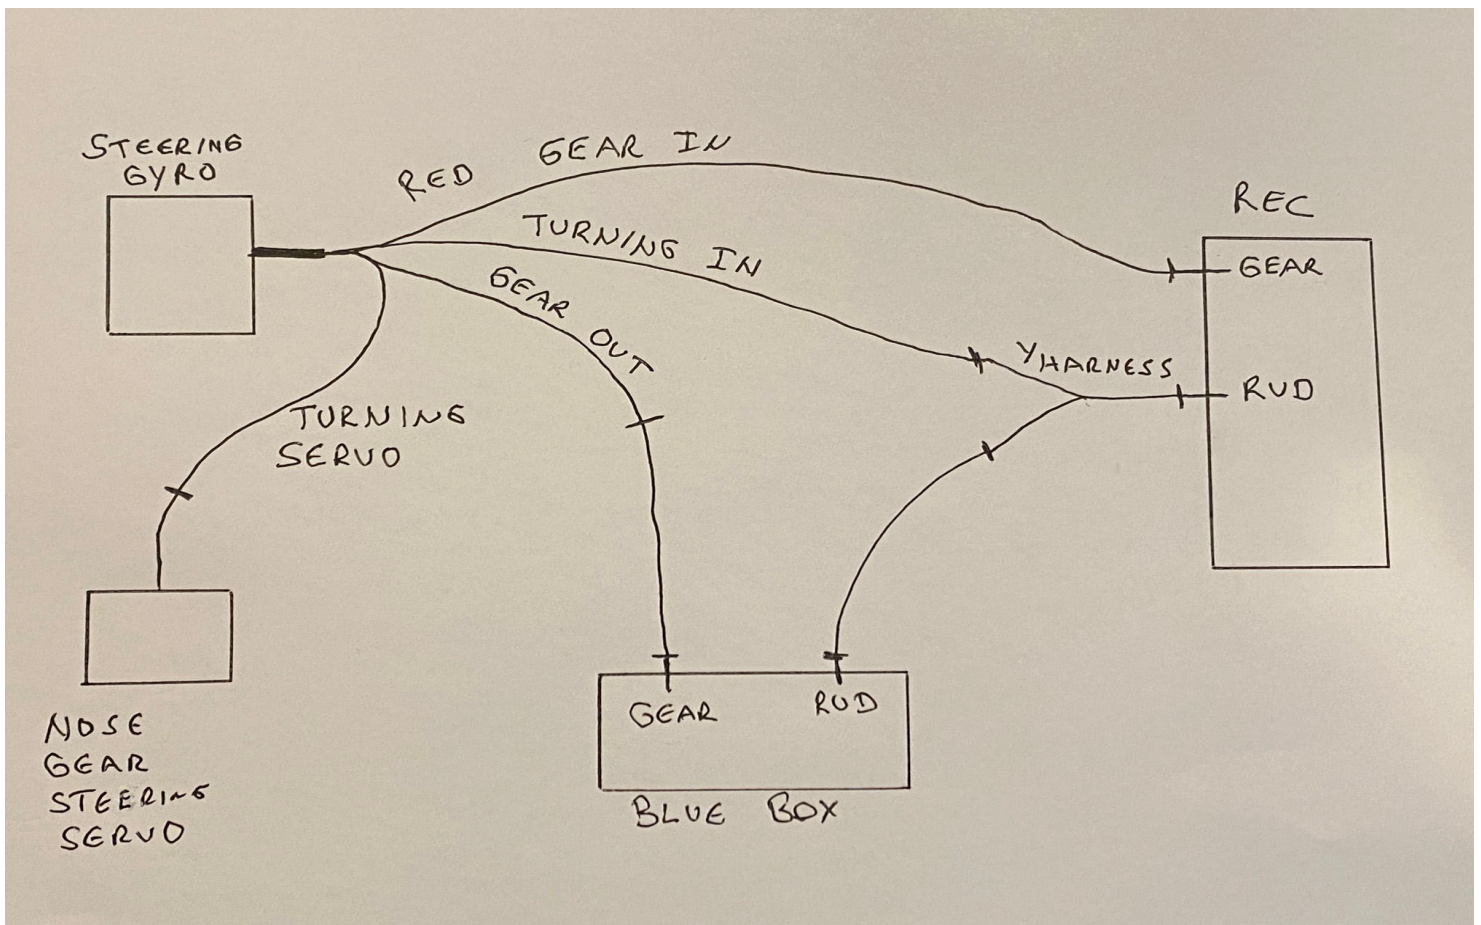 STEERING
GYRO
RED
GEAR IN
TURNING IN
GEAR OUT
TURNING
SERVO
Y HARNESS
REC
GEAR
RUD
NOSE
GEAR
STEERING
SERVO
GEAR
RUD
BLUE BOX